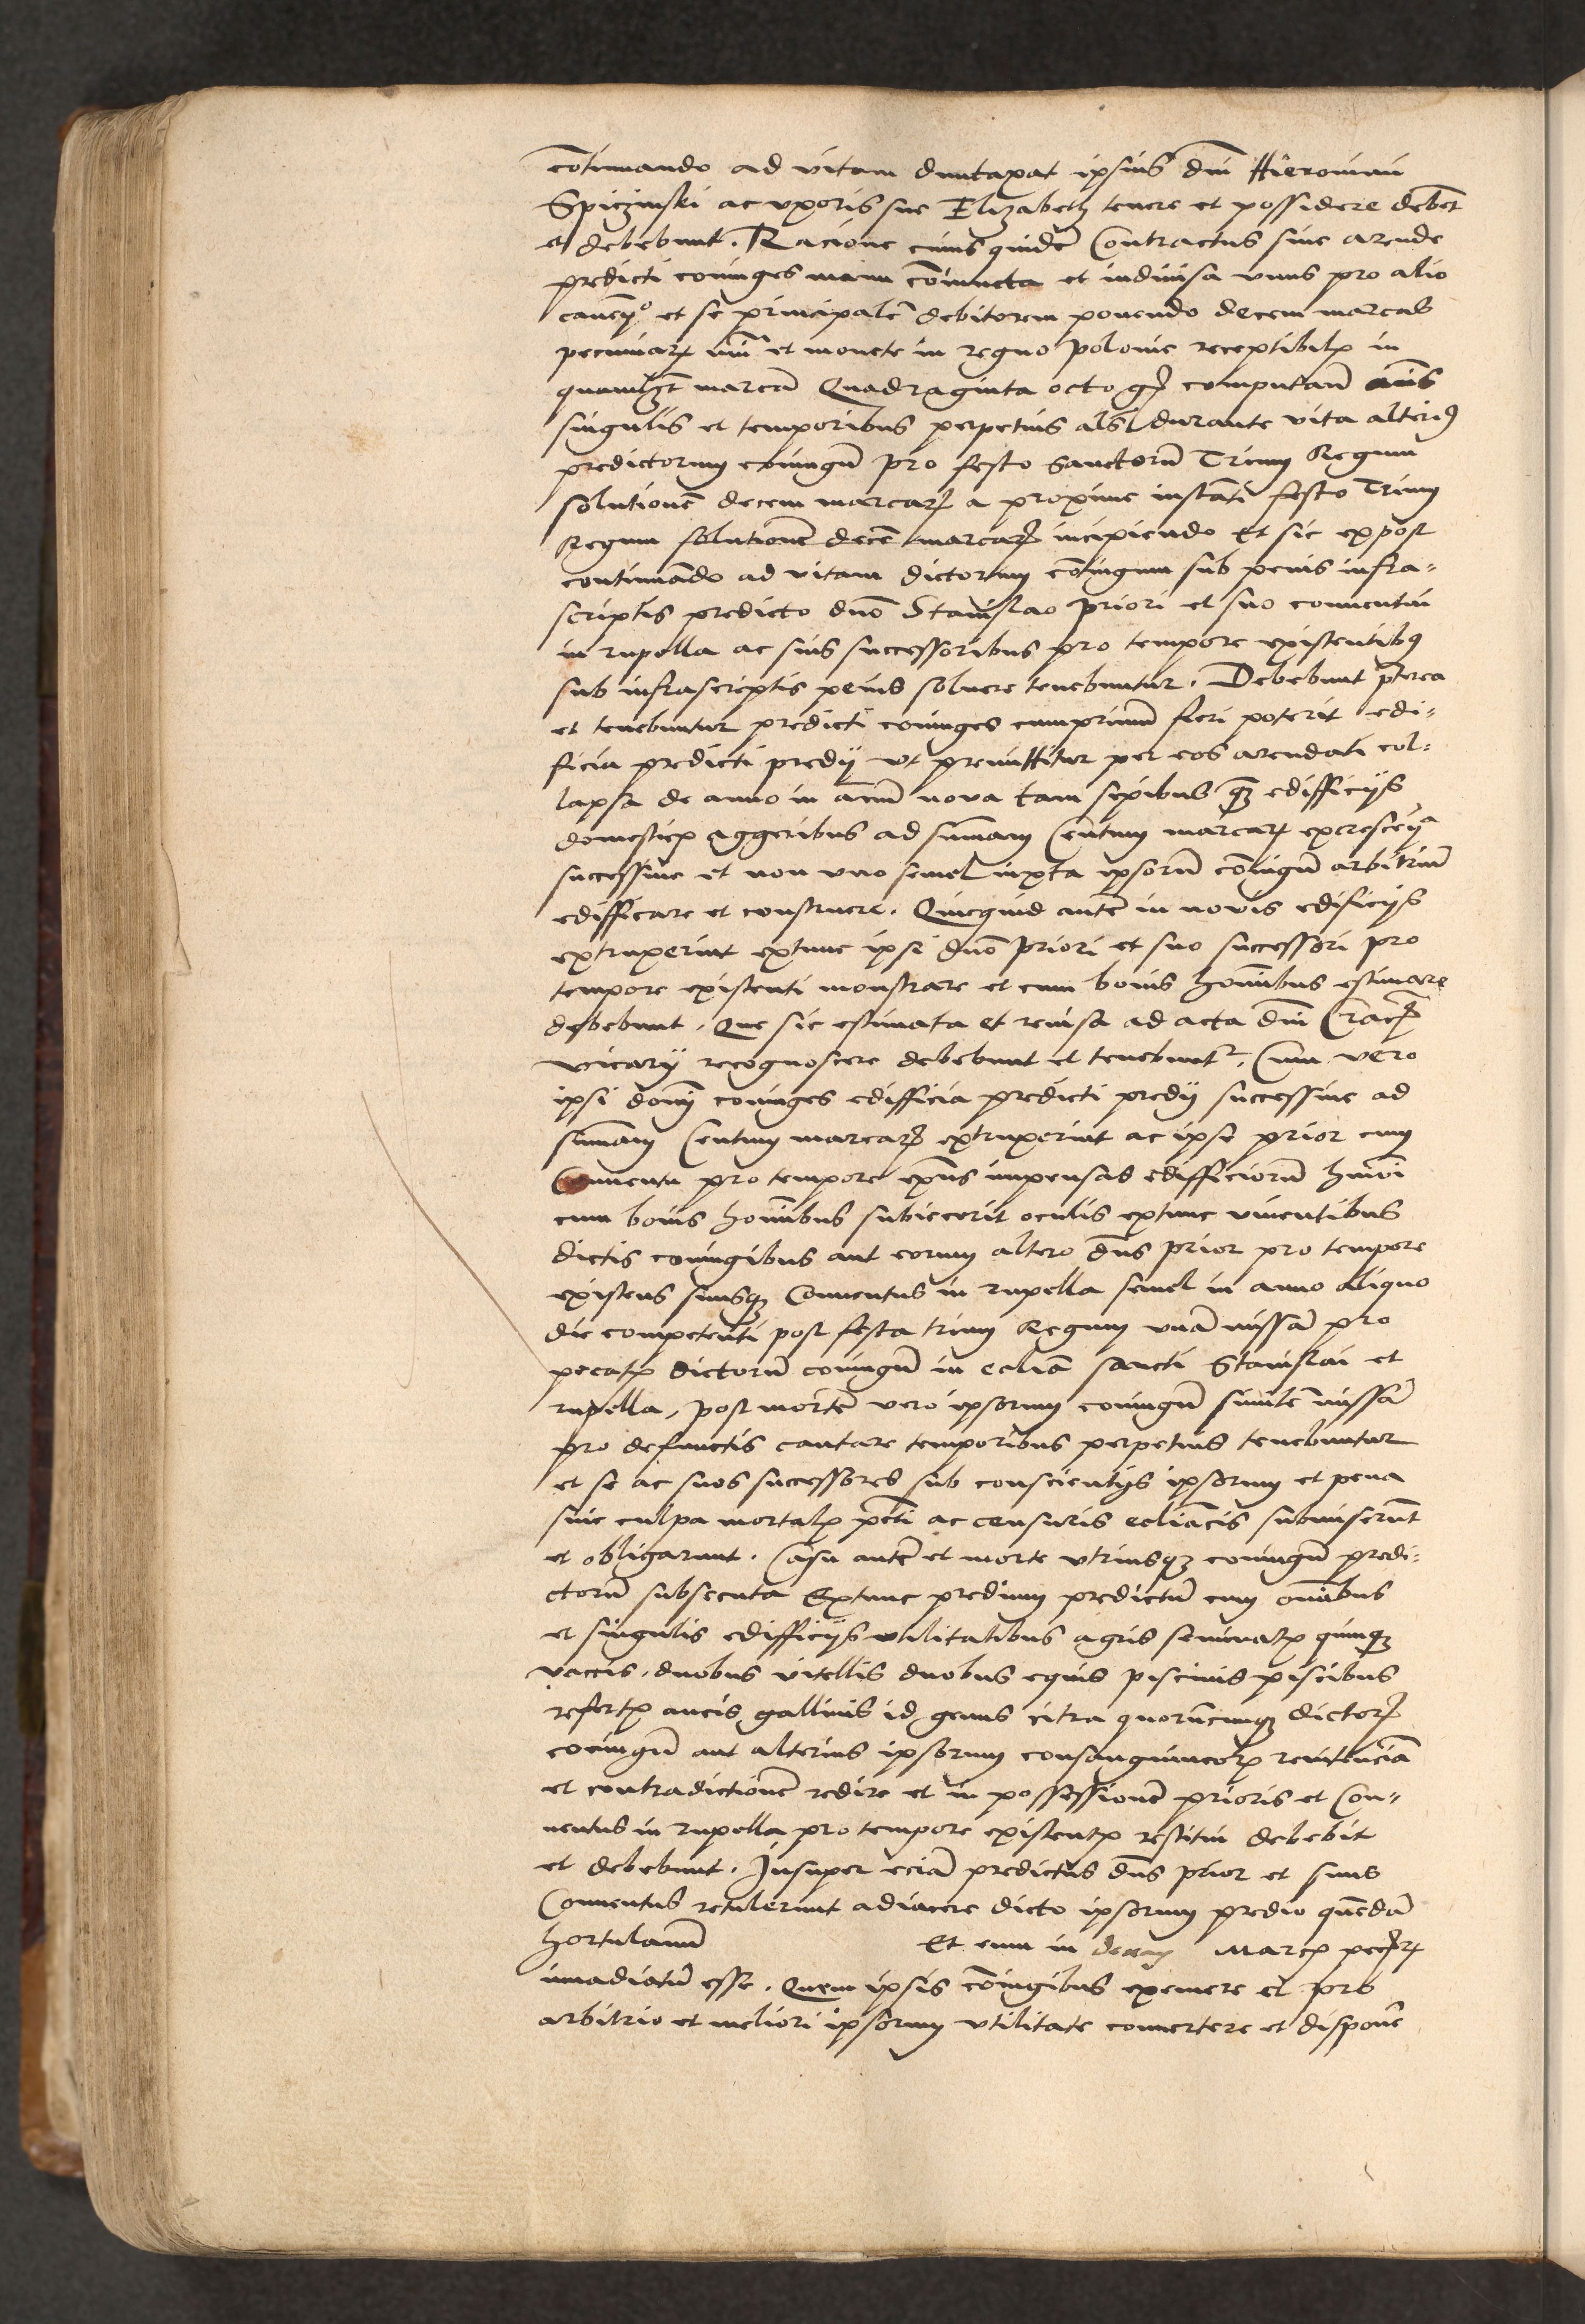 cōtinuando ad vitam duntaxat ipsius dni Hieronimi
Spiczinski ac vxoris sue Elizabeth tenere et possidere debēt
et debebunt. Racione cuius quidē Contractus siue arende
predicti coniuges manu cōiuncta et indiuisa vnus pro alio
et se principalē debitorem ponendo decem marcas
pecuniarꝝ et monete in regno polonie receptibilꝭ in
marcā Quadraginta octo gꝝ computañ annis
singulis et temporibus perpetuis als durante vita alteriꝰ
predictorum coniugū pro festo Sanctorū Trium Regum
solutionē decem marcarꝝ a proxime instāti festo Trium
Regum solutionē decē marcarꝝ incipiendo et sic expost
continuādo ad vitam dictorum cōiugum sub penis infra-
scriptis predicto dnō Stanislao priori et suo conuentui
in rupella ac suis successoribus pro tempore existentibꝰ
sub infrascriptis penis soluere tenebuntur. Debebunt pterea
et tenebuntur predicti coniuges cumprimū fieri poterit edi-
ficia predicti predij vt premittitur per eos arendati col-
lapsa de anno in annū noua tam sepibus ꝗꝫ edifficijs
domesticꝭ aggeribus ad sūmam Centum marcarꝝ
successiue et non vno semel iuxta ipsorū cōiugū arbitriū
edifficare et construere. Quicquid autē in nouis edificijs
extruxerint extunc ipsi dnō priori et suo successori pro
tempore existenti monstrare et cum bonis hominibus estimare
debebunt. Que sic estimata et reuisa ad acta dni Cracꝭ
vicarij recognoscere debebunt et tenebuntr. Cum vero
ipsi domini coniuges edifficia predicti predij successiue ad
sūmam Centum marcarꝝ extruxerint ac ipse prior cum
Conuentu pro tempore exñs impensas edifficiorū hmōi
cum bonis hominibus subiecerit oculis extunc viuentibus
dictis coniugibus aut eorum altero dns prior pro tempore
existens suusqꝫ Conuentus in rupella semel in anno aliquo
die competenti post festa trium Regum vnā missā pro
pecatꝭ dictorū coniugū in ecliā sancti Stanislai et
rupella, post mortē vero ipsorum coniugū similē missā
pro defunctis cantare temporibus perpetuis tenebuntur
et se ac suos successores sub conscientijs ipsorum et pena
siue culpa mortalꝭ pcti ac censuris ecliācis submiserunt
et obligarunt. Casu autē et morte vtriusqꝫ coniugū predi-
ctorū subsecuta Extunc predium predictū cum omnibus
et singulis edifficijs vtilitatibus agris seminatꝭ quinqꝫ
vaccis, duobus vitellis duobus equis piscinis piscibus
refertꝭ aucis gallinis id genus citra quorūcunqꝫ dictorꝝ
coniugū aut alterius ipsorum consanguineorꝝ renitenciā
et contradictionē redire et in possessionē prioris et Con-
uentus in rupella pro tempore existentꝭ restitui debebit
et debebunt. Insuper eciā predictus dns prior et suus
Conuentus retulerunt adiacere dicto ipsorum predio quēdā
hortulanū Et eum in decem Marcꝭ peccꝝ
inuadiatū esse. Quem ipsis cōiugibus exemere et pro
arbitrio et meliori ipsorum vtilitate conuertere et disponē